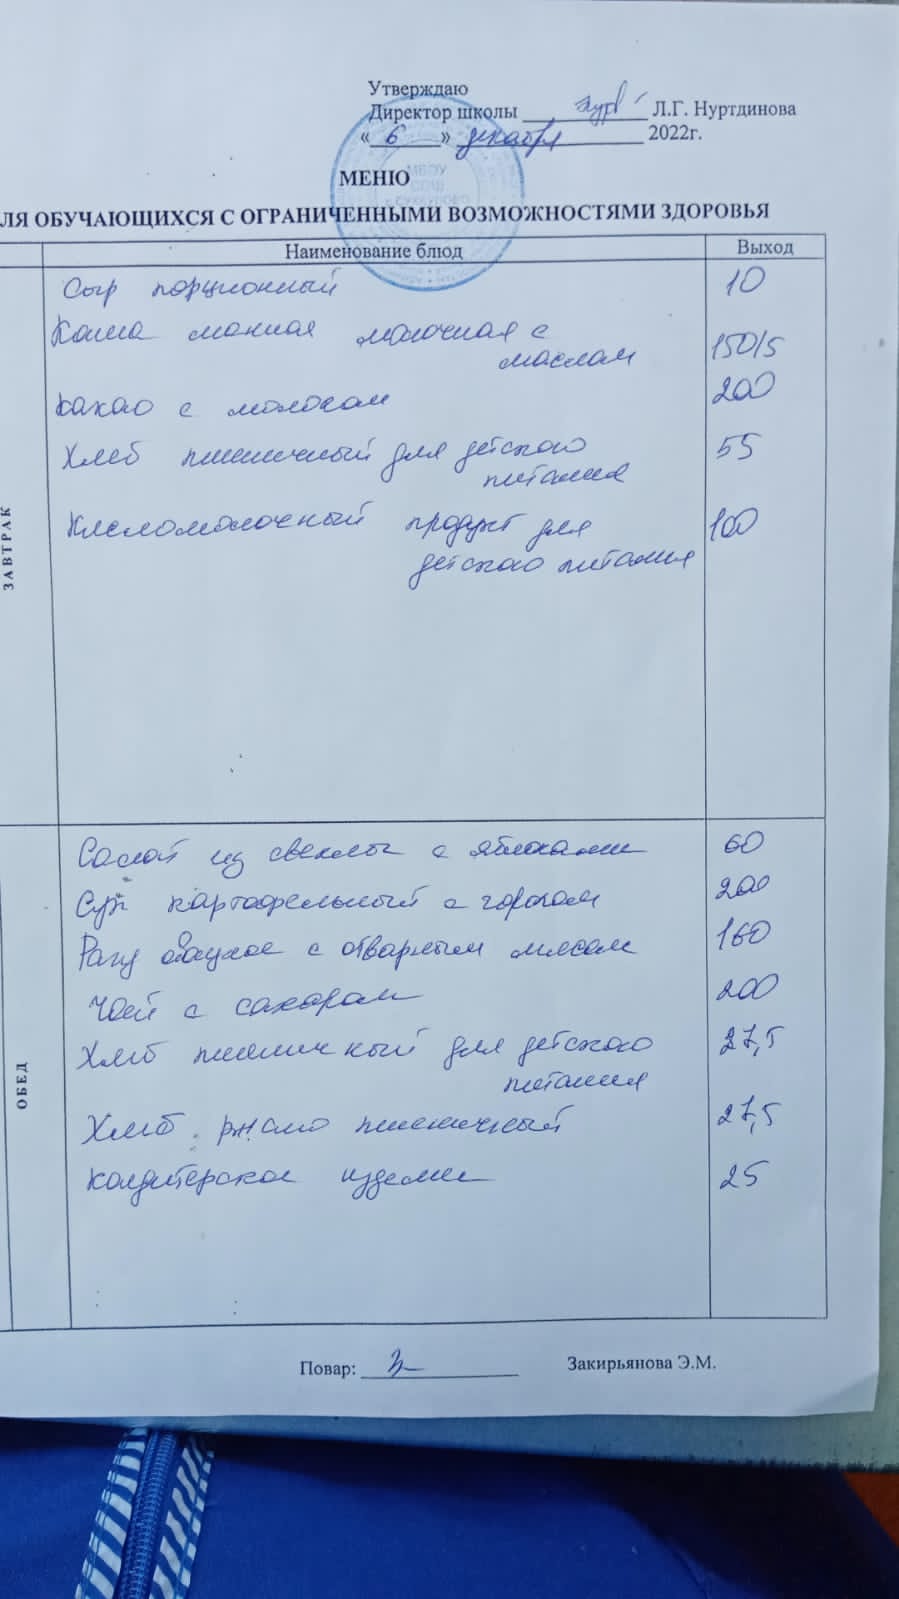 Утверждаю
Директор школы Л.Г. Нуртдинова
« 6 » декабря 2022г.
МЕНЮ
ЛЯ ОБУЧАЮЩИХСЯ С ОГРАНИЧЕННЫМИ ВОЗМОЖНОСТЯМИ ЗДОРОВЬЯ
Наименование блюд Выход
ЗАВТРАК
Сыр порционный 10
Каша манная молочная с
маслом 150/5
Какао с молоком 200
Хлеб пшеничный для детского 55
питания
Кисломолочный продукт для 100
детского питания
ОБЕД
Салат из свеклы с яблоками 60
Суп картофельный с горохом 200
Рагу овощное с отварным мясом 160
Чай с сахаром 200
Хлеб пшеничный для детского 27,5
питания
Хлеб ржано пшеничный 27,5
Кондитерское изделие 25
Повар: Закирьянова Э.М.